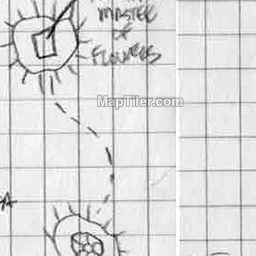 MASTER
OF
FLOWERS
MapTiler.com
A